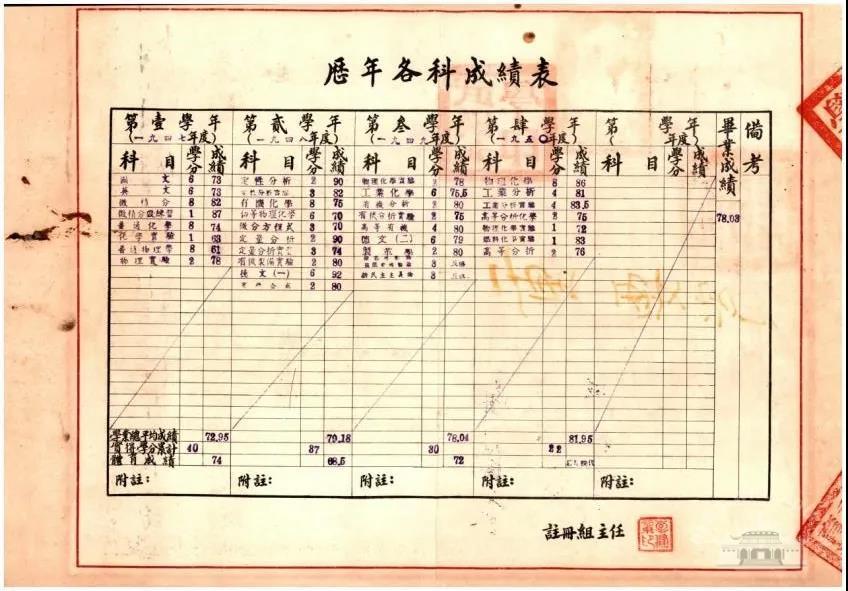 歷年各科成績表
第壹學年 第貳學年 第叁學年 第肆學年 第(  學年 畢業成績 備考
(一九四七年度) (一九四八年度) (一九四九年度) (一九五〇年度) 學年度)
科目 學分 成績 科目 學分 成績 科目 學分 成績 科目 學分 成績 科目 學分 成績
國文 6 73 定性分析 2 90 物理化學實驗 78 物理化學 8 86
英文 6 73 定性分析實驗 3 82 工業化學 6 75.5 工業分析 4 81
微積分 8 82 有機化學 8 75 有機分析 2 80 工業分析實驗 4 83.5
微積分演練習 1 87 初等物理化學 6 70 有機分析實驗 2 75 高等分析化學 2 75 78.03
普通化學 8 74 微分方程式 3 70 高等有機 4 80 物理化學實驗 1 72
化學實驗 1 63 定量分析 2 90 德文(二) 6 79 燃料化學實驗 1 83
普通物理學 8 61 定量分析實驗 3 74 製革學 2 80 高等分析 2 76
物理實驗 2 78 有機製備實驗 2 80 3
德文(一) 6 92 新民主主義論 3
2 80
學業總平均成績 72.95 79.18 78.04 81.95
實得學分累計 40 37 30 22
體育成績 74 68.5 72
附註: 附註: 附註: 附註: 附註:
註冊組主任